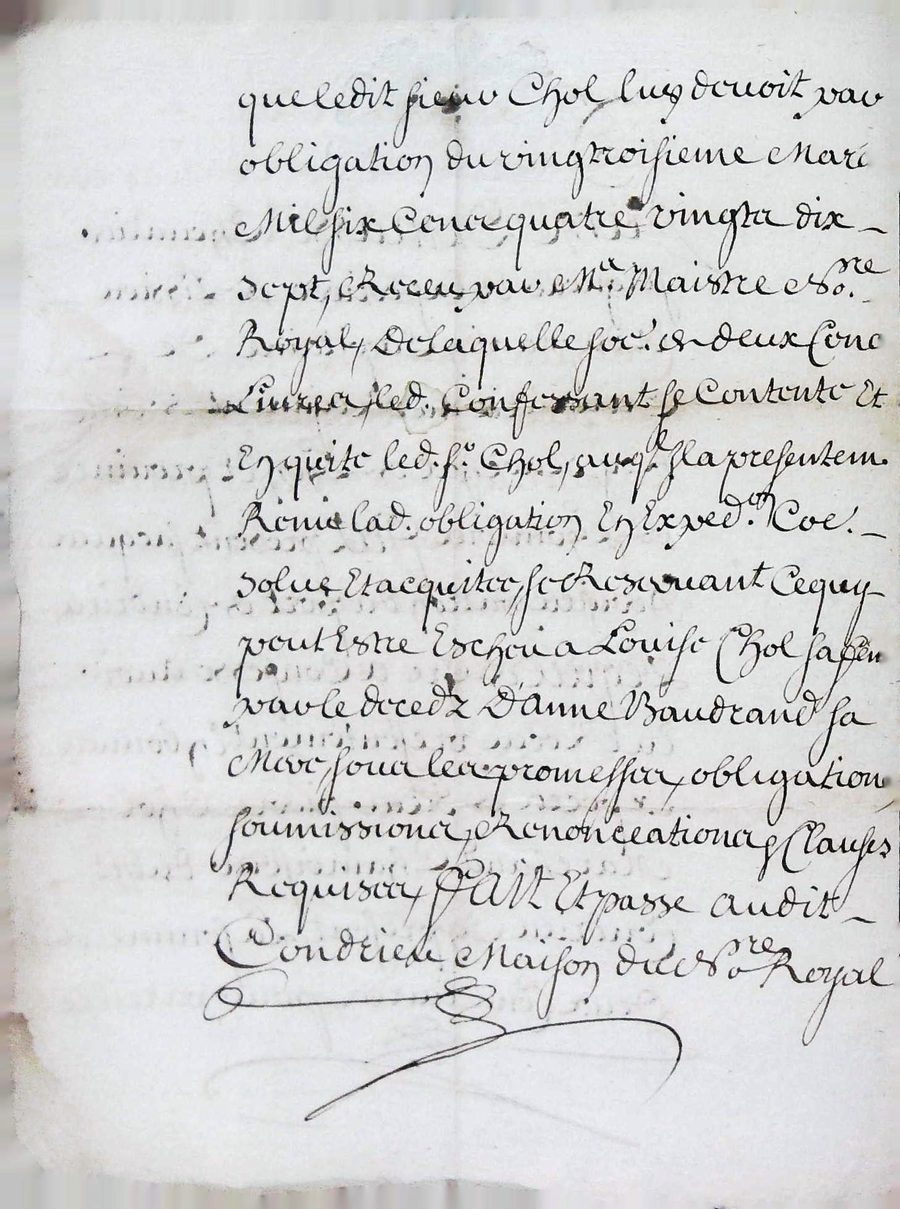 que ledit sieur Chol luy devoit par
obligation du vingtroisieme Mars
Mil six Cens quatre vingts dix _
Sept, Receu par Me. Maistre No.re
Royal, De laquelle so.e de deux Cens
Livres led. Confessant se Contente Et
En quite led. sr. Chol, auql. Il a presentem.
Remis lad. obligation En Exped.on Coe. _
Solue Et acquitee, se Reservant Ce quy
peut Estre Escheu a Louise Chol sa fem
par le decedz D'anne Baudrand sa
Mere, sous les promesses, obligation,
soumissions, Renonceations, & Clauses
Requises, Fait Et passe audit _
Condrieu Maison du No.re Royal